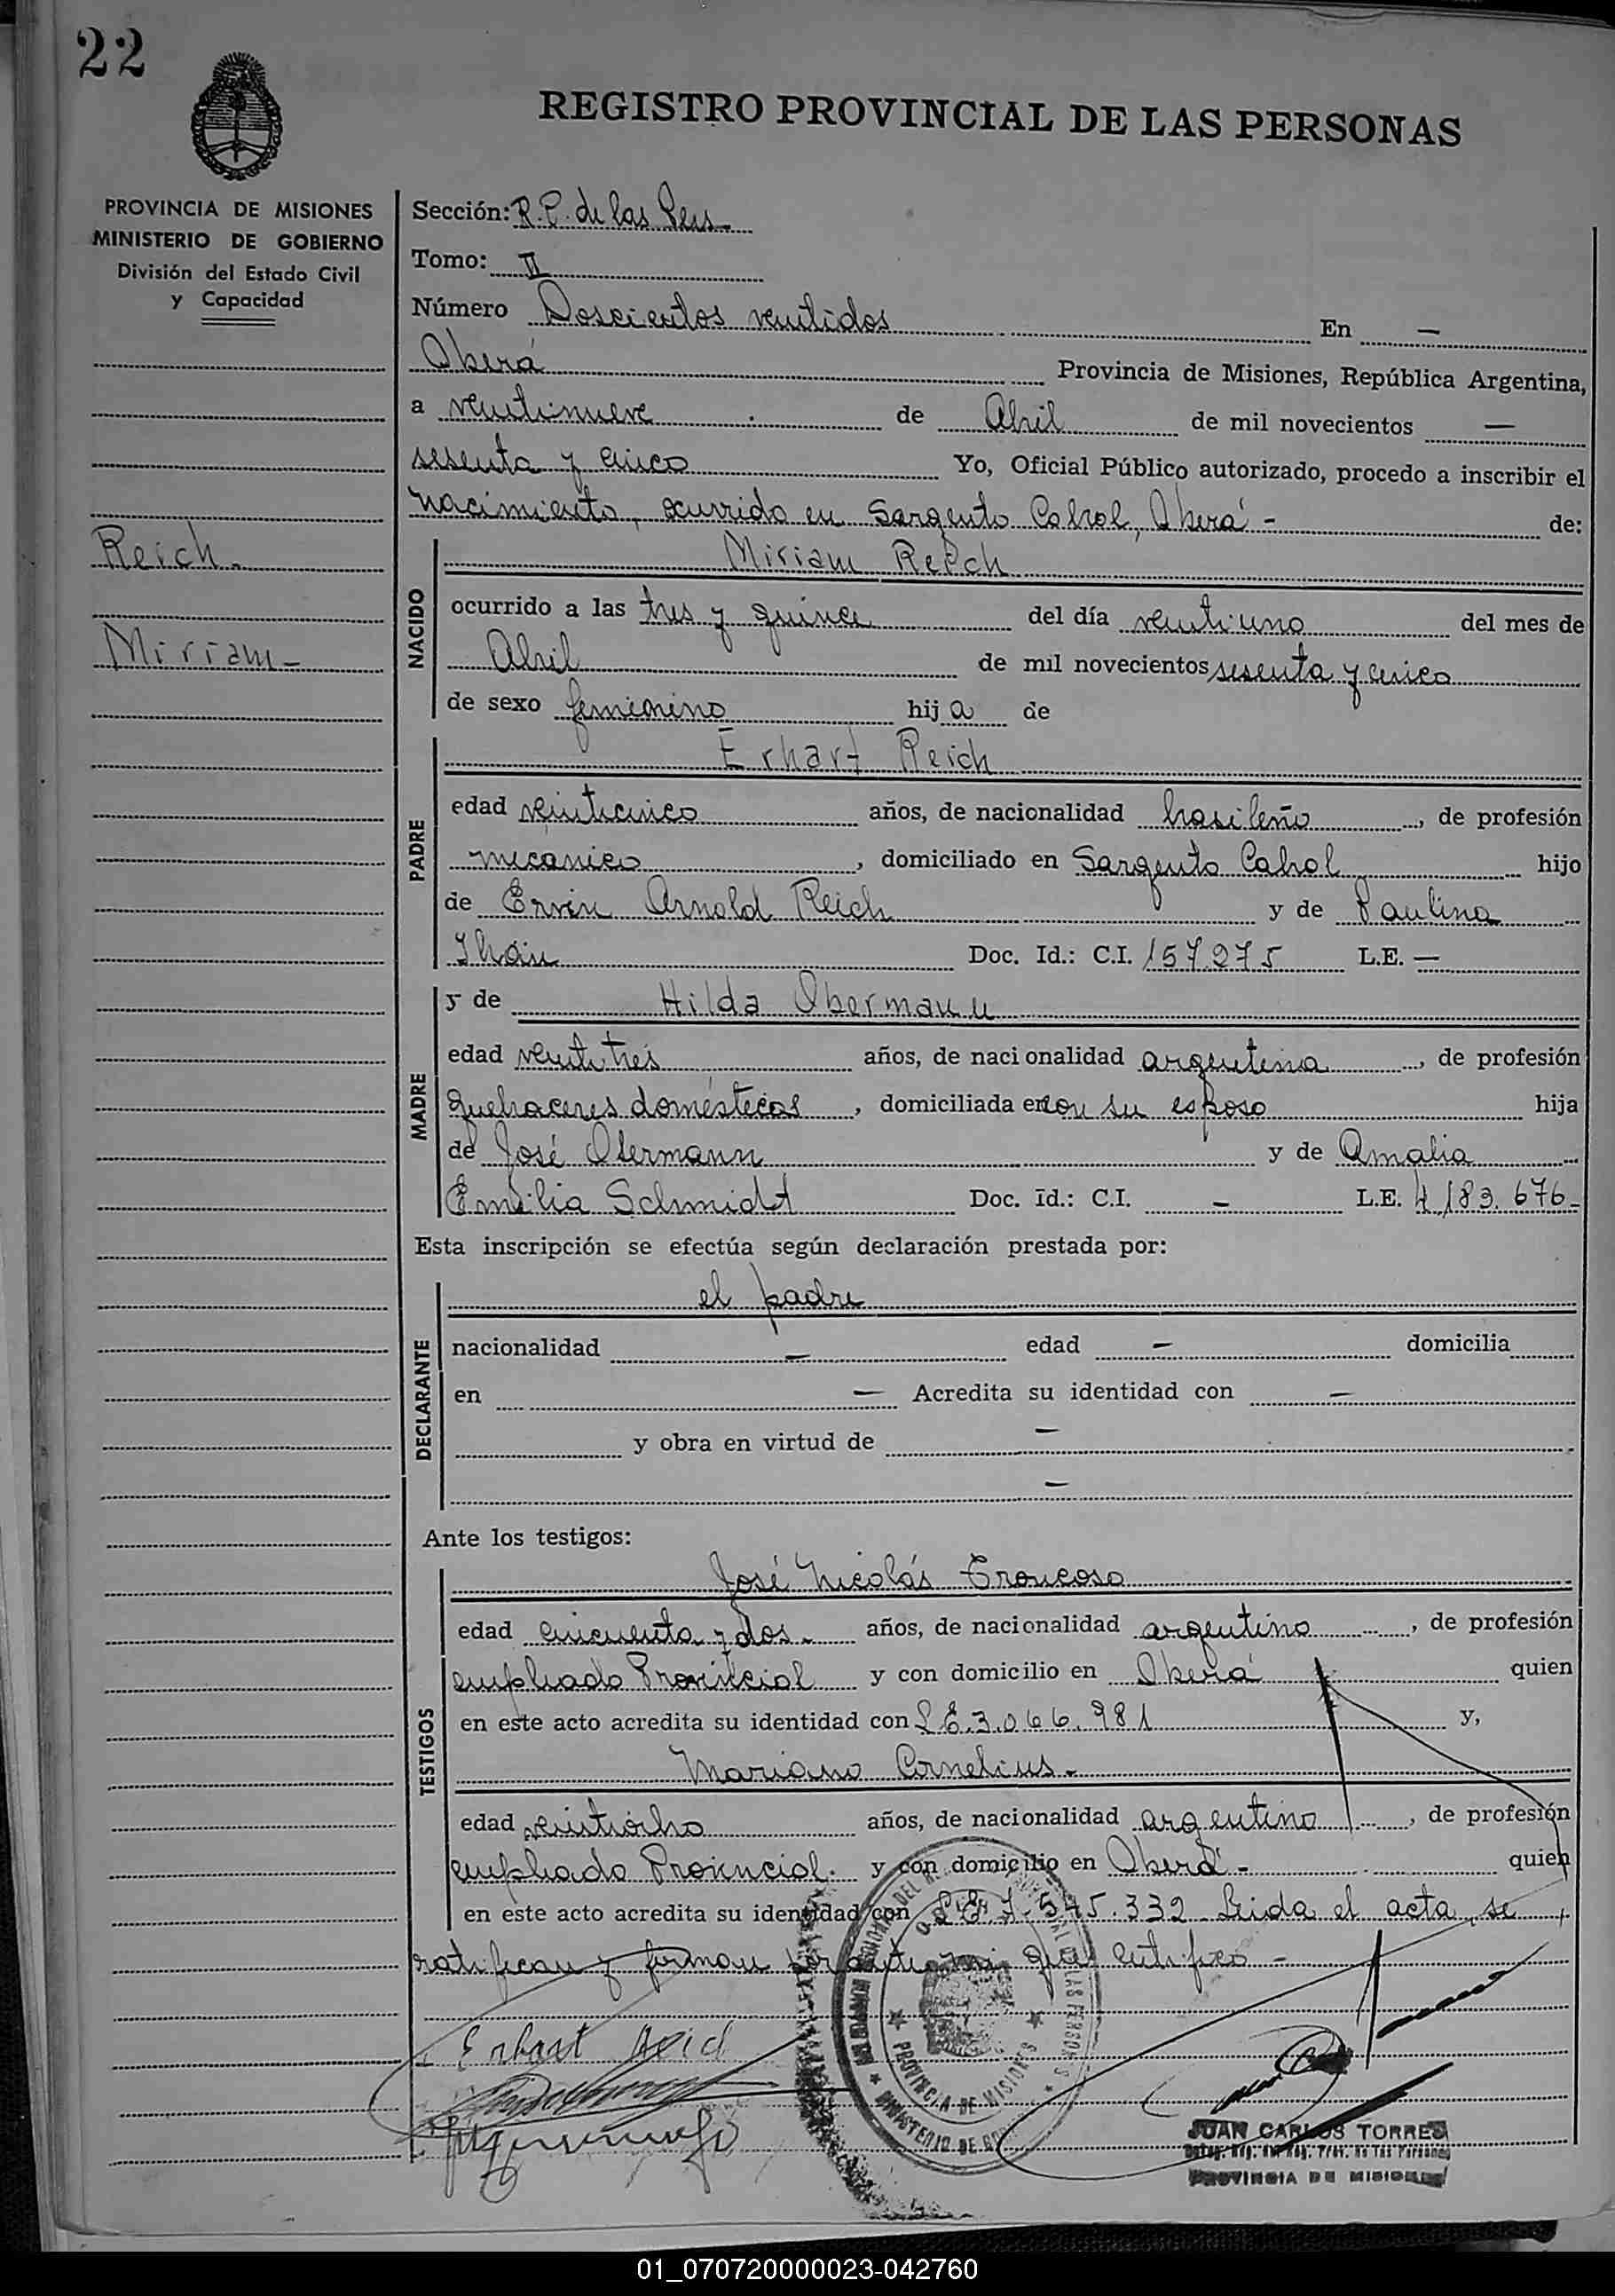 22
REGISTRO PROVINCIAL DE LAS PERSONAS
PROVINCIA DE MISIONES
MINISTERIO DE GOBIERNO
División del Estado Civil
y Capacidad
Reich.
Miriam -
Sección: R. P. de las Pers.
Tomo: II
Número Doscientos ventidos En —
Oberá Provincia de Misiones, República Argentina,
a ventinueve de Abril de mil novecientos —
sesenta y cinco Yo, Oficial Público autorizado, procedo a inscribir el
nacimiento, ocurrido en Sargento Cabral, Oberá - de:
NACIDO
Miriam Reich
ocurrido a las tres y quince del día ventiuno del mes de
Abril de mil novecientos sesenta y cinco
de sexo femenino hija de
PADRE
Erhart Reich
edad veinticinco años, de nacionalidad brasileño, de profesión
mecanico, domiciliado en Sargento Cabral hijo
de Ervin Arnold Reich y de Paulina
Doc. Id.: C.I. 157.275 L.E. —
MADRE
y de Hilda Obermann
edad ventitrés años, de nacionalidad argentina, de profesión
quehaceres domésticos, domiciliada en con su esposo hija
de José Obermann y de Amalia
Emilia Schmidt Doc. Id.: C.I. - L.E. 4.183.676 -
Esta inscripción se efectúa según declaración prestada por:
DECLARANTE
el padre
nacionalidad — edad — domicilia
en — Acredita su identidad con —
y obra en virtud de —
—
Ante los testigos:
TESTIGOS
José Nicolás Troncoso
edad cincuenta y dos. años, de nacionalidad argentino, de profesión
empleado Provincial y con domicilio en Oberá quien
en este acto acredita su identidad con L E. 3.066.981 y,
Mariano Cornelius.
edad veintiocho años, de nacionalidad argentino, de profesión
empleado Provincial. y con domicilio en Oberá - quien
en este acto acredita su identidad con L E. 7.545.332 Leida el acta, se
ratifican y firman por ante mi que certifico -
Erhart Reich
PROVINCIA DE MISIONES
MINISTERIO DE
JUAN CARLOS TORRES
PROVINCIA DE MISIONES
01_070720000023-042760